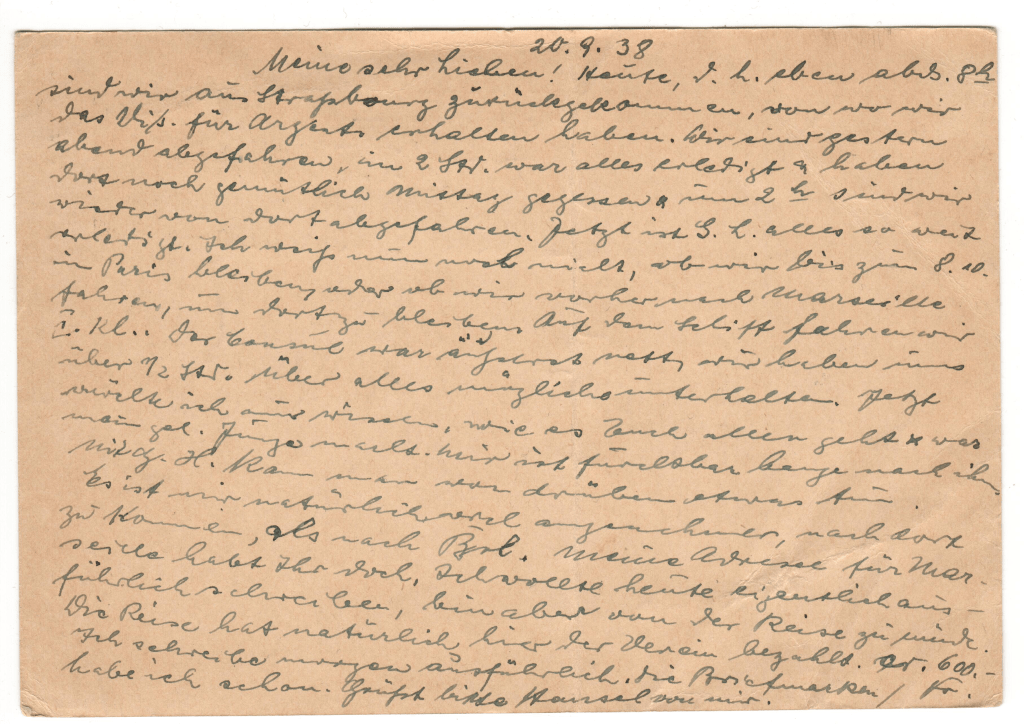 20.9.38
Meine sehr Lieben! Heute, d. h. eben abds. 8h
sind wir aus Strassbourg zurückgekommen, von wo wir
das Vis. für Argent. erhalten haben. Wir sind gestern
abend abgefahren, in 2 Std. war alles erledigt & haben
dort noch gemütlich Mittag gegessen & um 2 h sind wir
wieder von dort abgefahren. Jetzt ist G. L. alles so weit
erledigt. Ich weiss nun noch nicht, ob wir bis zum 8.10.
in Paris bleiben, oder ob wir vorher nach Marseille
fahren, um dort zu bleiben. Auf dem Schiff fahren wir
I. Kl.. Der Consul war äusserst nett, wir haben uns
über 1/2 Std. über alles mögliche unterhalten. Jetzt
will ich nur wissen, wie es Euch allen geht & was
mein gel. Junge macht. Mir ist furchtbar bange nach ihm.
Kann man von drüben etwas tun.
Es ist mir natürlich viel angenehmer, nach dort
zu kommen, als nach Bsl. Meine Adresse für Mar-
seille habt Ihr doch. Ich wollte heute eigentlich aus-
führlich schreiben, bin aber von der Reise zu müde.
Die Reise hat natürlich hier der Verein bezahlt. cr. 600.-
Ich schreibe morgen ausführlich. Die Briefmarken / Fr.
habe ich schon. Grüsst bitte Hansel von mir.